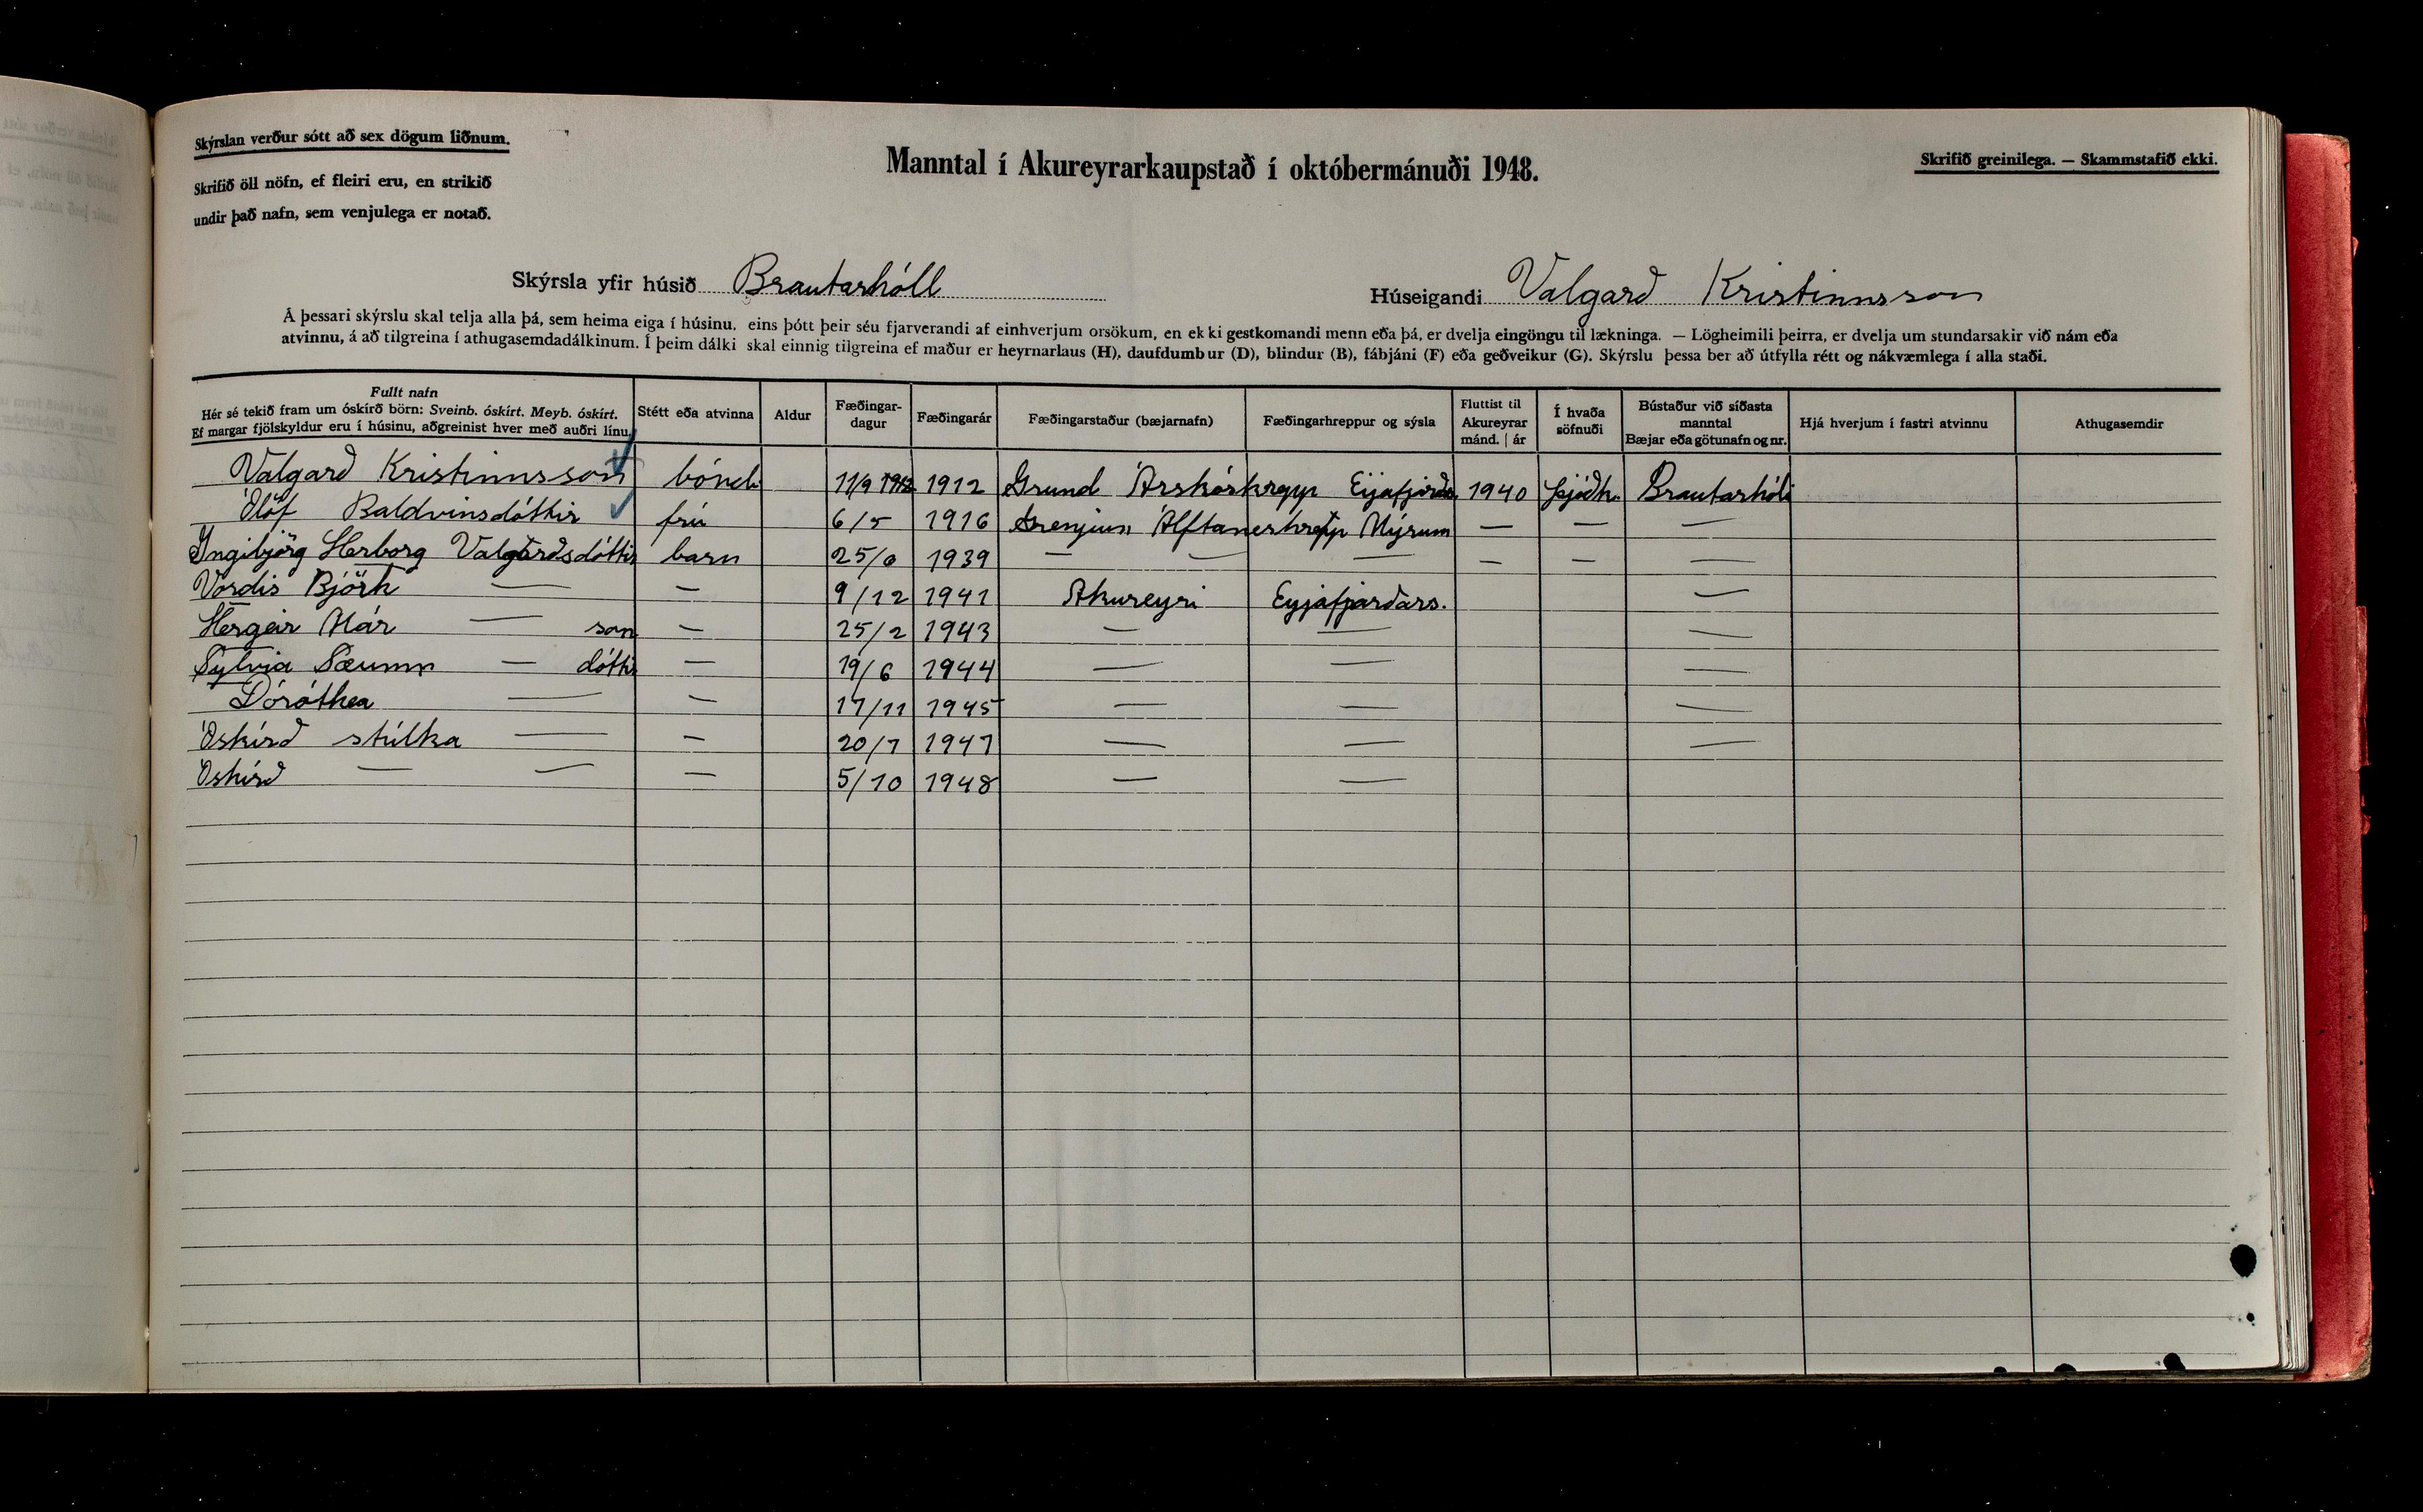 Skýrslan verður sótt að sex dögum liðnum.
Skrifið öll nöfn, ef fleiri eru, en strikið
undir það nafn, sem venjulega er notað.
Manntal í Akureyrarkaupstað í októbermánuði 1948.
Skrifið greinilega. — Skammstafið ekki.
Skýrsla yfir húsið Brautarhóll
Húseigandi Valgarð Kristinnsson
Á þessari skýrslu skal telja alla þá, sem heima eiga í húsinu, eins þótt þeir séu fjarverandi af einhverjum orsökum, en ekki gestkomandi menn eða þá, er dvelja eingöngu til lækninga. — Lögheimili þeirra, er dvelja um stundarsakir við nám eða
atvinnu, á að tilgreina í athugasemdadálkinum. Í þeim dálki skal einnig tilgreina ef maður er heyrnarlaus (H), daufdumbur (D), blindur (B), fábjáni (F) eða geðveikur (G). Skýrslu þessa ber að útfylla rétt og nákvæmlega í alla staði.
Fullt nafn
Hér sé tekið fram um óskírð börn: Sveinb. óskírt. Meyb. óskírt.
Ef margar fjölskyldur eru í húsinu, aðgreinist hver með auðri línu.
Stétt eða atvinna
Aldur
Fæðingar-
dagur
Fæðingarár
Fæðingarstaður (bæjarnafn)
Fæðingarhreppur og sýsla
Fluttist til
Akureyrar
mánd. | ár
Í hvaða
söfnuði
Bústaður við síðasta
manntal
Bæjar eða götunafn og nr.
Hjá hverjum í fastri atvinnu
Athugasemdir
Valgarð Kristinnsson bóndi 11/9 1912 1912 Grund Árskóshrepp Eyjafjörð 1940 Þjóðk. Brautarhóli
Ólöf Baldvinsdóttir frú 6/5 1916 Álftaneshrepp Mýrum — — —
Ingibjörg Herborg Valgarðsdóttir barn 25/6 1939 — — — — — —
Vordis Björk — — 9/12 1941 Akureyri Eyjafjarðars. —
Hergeir Már — son — 25/2 1943 — — —
Sylvia Sæunn — dóttir — 19/6 1944 — — —
Dóróthea — — 17/11 1945 — — —
Óskírð stúlka — — 20/7 1947 — — —
Óskírð — — — 5/10 1948 — —